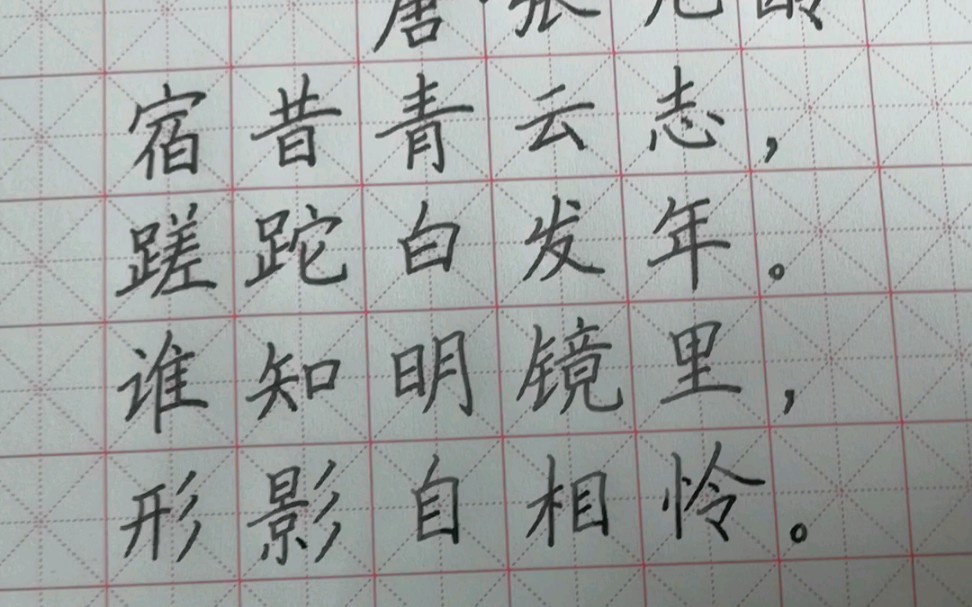 唐·张九龄
宿昔青云志，
蹉跎白发年。
谁知明镜里，
形影自相怜。